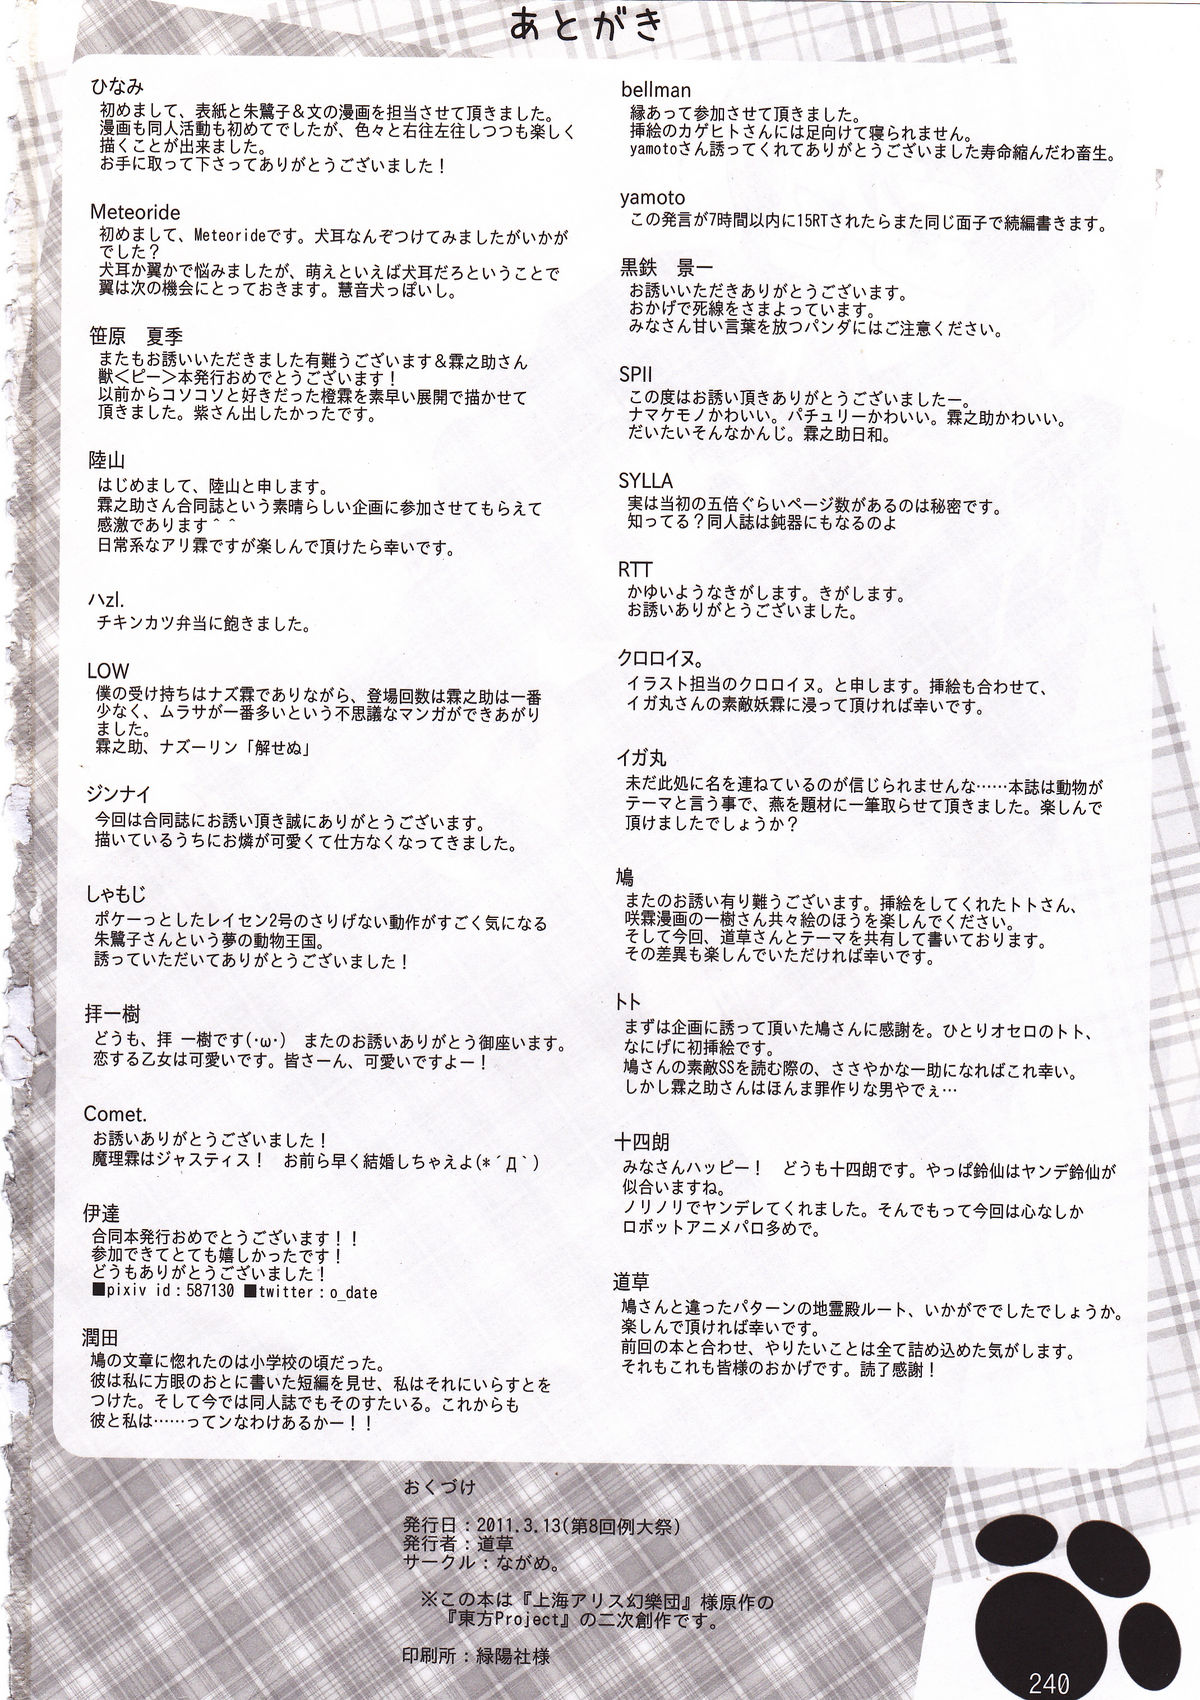 あとがき
ひなみ
初めまして、表紙と朱鷺子&文の漫画を担当させて頂きました。
漫画も同人活動も初めてでしたが、色々と右往左往しつつも楽しく
描くことが出来ました。
お手に取って下さってありがとうございました!
Meteoride
初めまして、Meteorideです。犬耳なんぞつけてみましたがいかが
でした?
犬耳か翼かで悩みましたが、萌えといえば犬耳だろということで
翼は次の機会にとっておきます。慧音犬っぽいし。
笹原 夏季
またもお誘いいただきました有難うございます&霖之助さん
獣<ピー>本発行おめでとうございます!
以前からコソコソと好きだった橙霖を素早い展開で描かせて
頂きました。紫さん出したかったです。
陸山
はじめまして、陸山と申します。
霖之助さん合同誌という素晴らしい企画に参加させてもらえて
感激であります＾＾
日常系なアリ霖ですが楽しんで頂けたら幸いです。
ハzl.
チキンカツ弁当に飽きました。
LOW
僕の受け持ちはナズ霖でありながら、登場回数は霖之助は一番
少なく、ムラサが一番多いという不思議なマンガができあがり
ました。
霖之助、ナズーリン「解せぬ」
ジンナイ
今回は合同誌にお誘い頂き誠にありがとうございます。
描いているうちにお燐が可愛くて仕方なくなってきました。
しゃもじ
ポケーっとしたレイセン2号のさりげない動作がすごく気になる
朱鷺子さんという夢の動物王国。
誘っていただいてありがとうございました!
拝一樹
どうも、拝 一樹です(･ω･) またのお誘いありがとう御座います。
恋する乙女は可愛いです。皆さーん、可愛いですよー!
Comet.
お誘いありがとうございました!
魔理霖はジャスティス! お前ら早く結婚しちゃえよ(*´Д｀)
伊達
合同本発行おめでとうございます!!
参加できてとても嬉しかったです!
どうもありがとうございました!
■pixiv id：587130 ■twitter：o_date
潤田
鳩の文章に惚れたのは小学校の頃だった。
彼は私に方眼のおとに書いた短編を見せ、私はそれにいらすとを
つけた。そして今では同人誌でもそのすたいる。これからも
彼と私は……ってンなわけあるかー!!
bellman
縁あって参加させて頂きました。
挿絵のカゲヒトさんには足向けて寝られません。
yamotoさん誘ってくれてありがとうございました寿命縮んだわ畜生。
yamoto
この発言が7時間以内に15RTされたらまた同じ面子で続編書きます。
黒鉄 景一
お誘いいただきありがとうございます。
おかげで死線をさまよっています。
みなさん甘い言葉を放つパンダにはご注意ください。
SPII
この度はお誘い頂きありがとうございましたー。
ナマケモノかわいい。パチュリーかわいい。霖之助かわいい。
だいたいそんなかんじ。霖之助日和。
SYLLA
実は当初の五倍ぐらいページ数があるのは秘密です。
知ってる?同人誌は鈍器にもなるのよ
RTT
かゆいようなきがします。きがします。
お誘いありがとうございました。
クロロイヌ。
イラスト担当のクロロイヌ。と申します。挿絵も合わせて、
イガ丸さんの素敵妖霖に浸って頂ければ幸いです。
イガ丸
未だ此処に名を連ねているのが信じられませんな……本誌は動物が
テーマと言う事で、燕を題材に一筆取らせて頂きました。楽しんで
頂けましたでしょうか?
鳩
またのお誘い有り難うございます。挿絵をしてくれたトトさん、
咲霖漫画の一樹さん共々絵のほうを楽しんでください。
そして今回、道草さんとテーマを共有して書いております。
その差異も楽しんでいただければ幸いです。
トト
まずは企画に誘って頂いた鳩さんに感謝を。ひとりオセロのトト、
なにげに初挿絵です。
鳩さんの素敵SSを読む際の、ささやかな一助になればこれ幸い。
しかし霖之助さんはほんま罪作りな男やでぇ…
十四朗
みなさんハッピー! どうも十四朗です。やっぱ鈴仙はヤンデ鈴仙が
似合いますね。
ノリノリでヤンデレてくれました。そんでもって今回は心なしか
ロボットアニメパロ多めで。
道草
鳩さんと違ったパターンの地霊殿ルート、いかがででしたでしょうか。
楽しんで頂ければ幸いです。
前回の本と合わせ、やりたいことは全て詰め込めた気がします。
それもこれも皆様のおかげです。読了感謝!
おくづけ
発行日：2011.3.13(第8回例大祭)
発行者：道草
サークル：ながめ。
※この本は『上海アリス幻樂団』様原作の
『東方Project』の二次創作です。
印刷所：緑陽社様
240